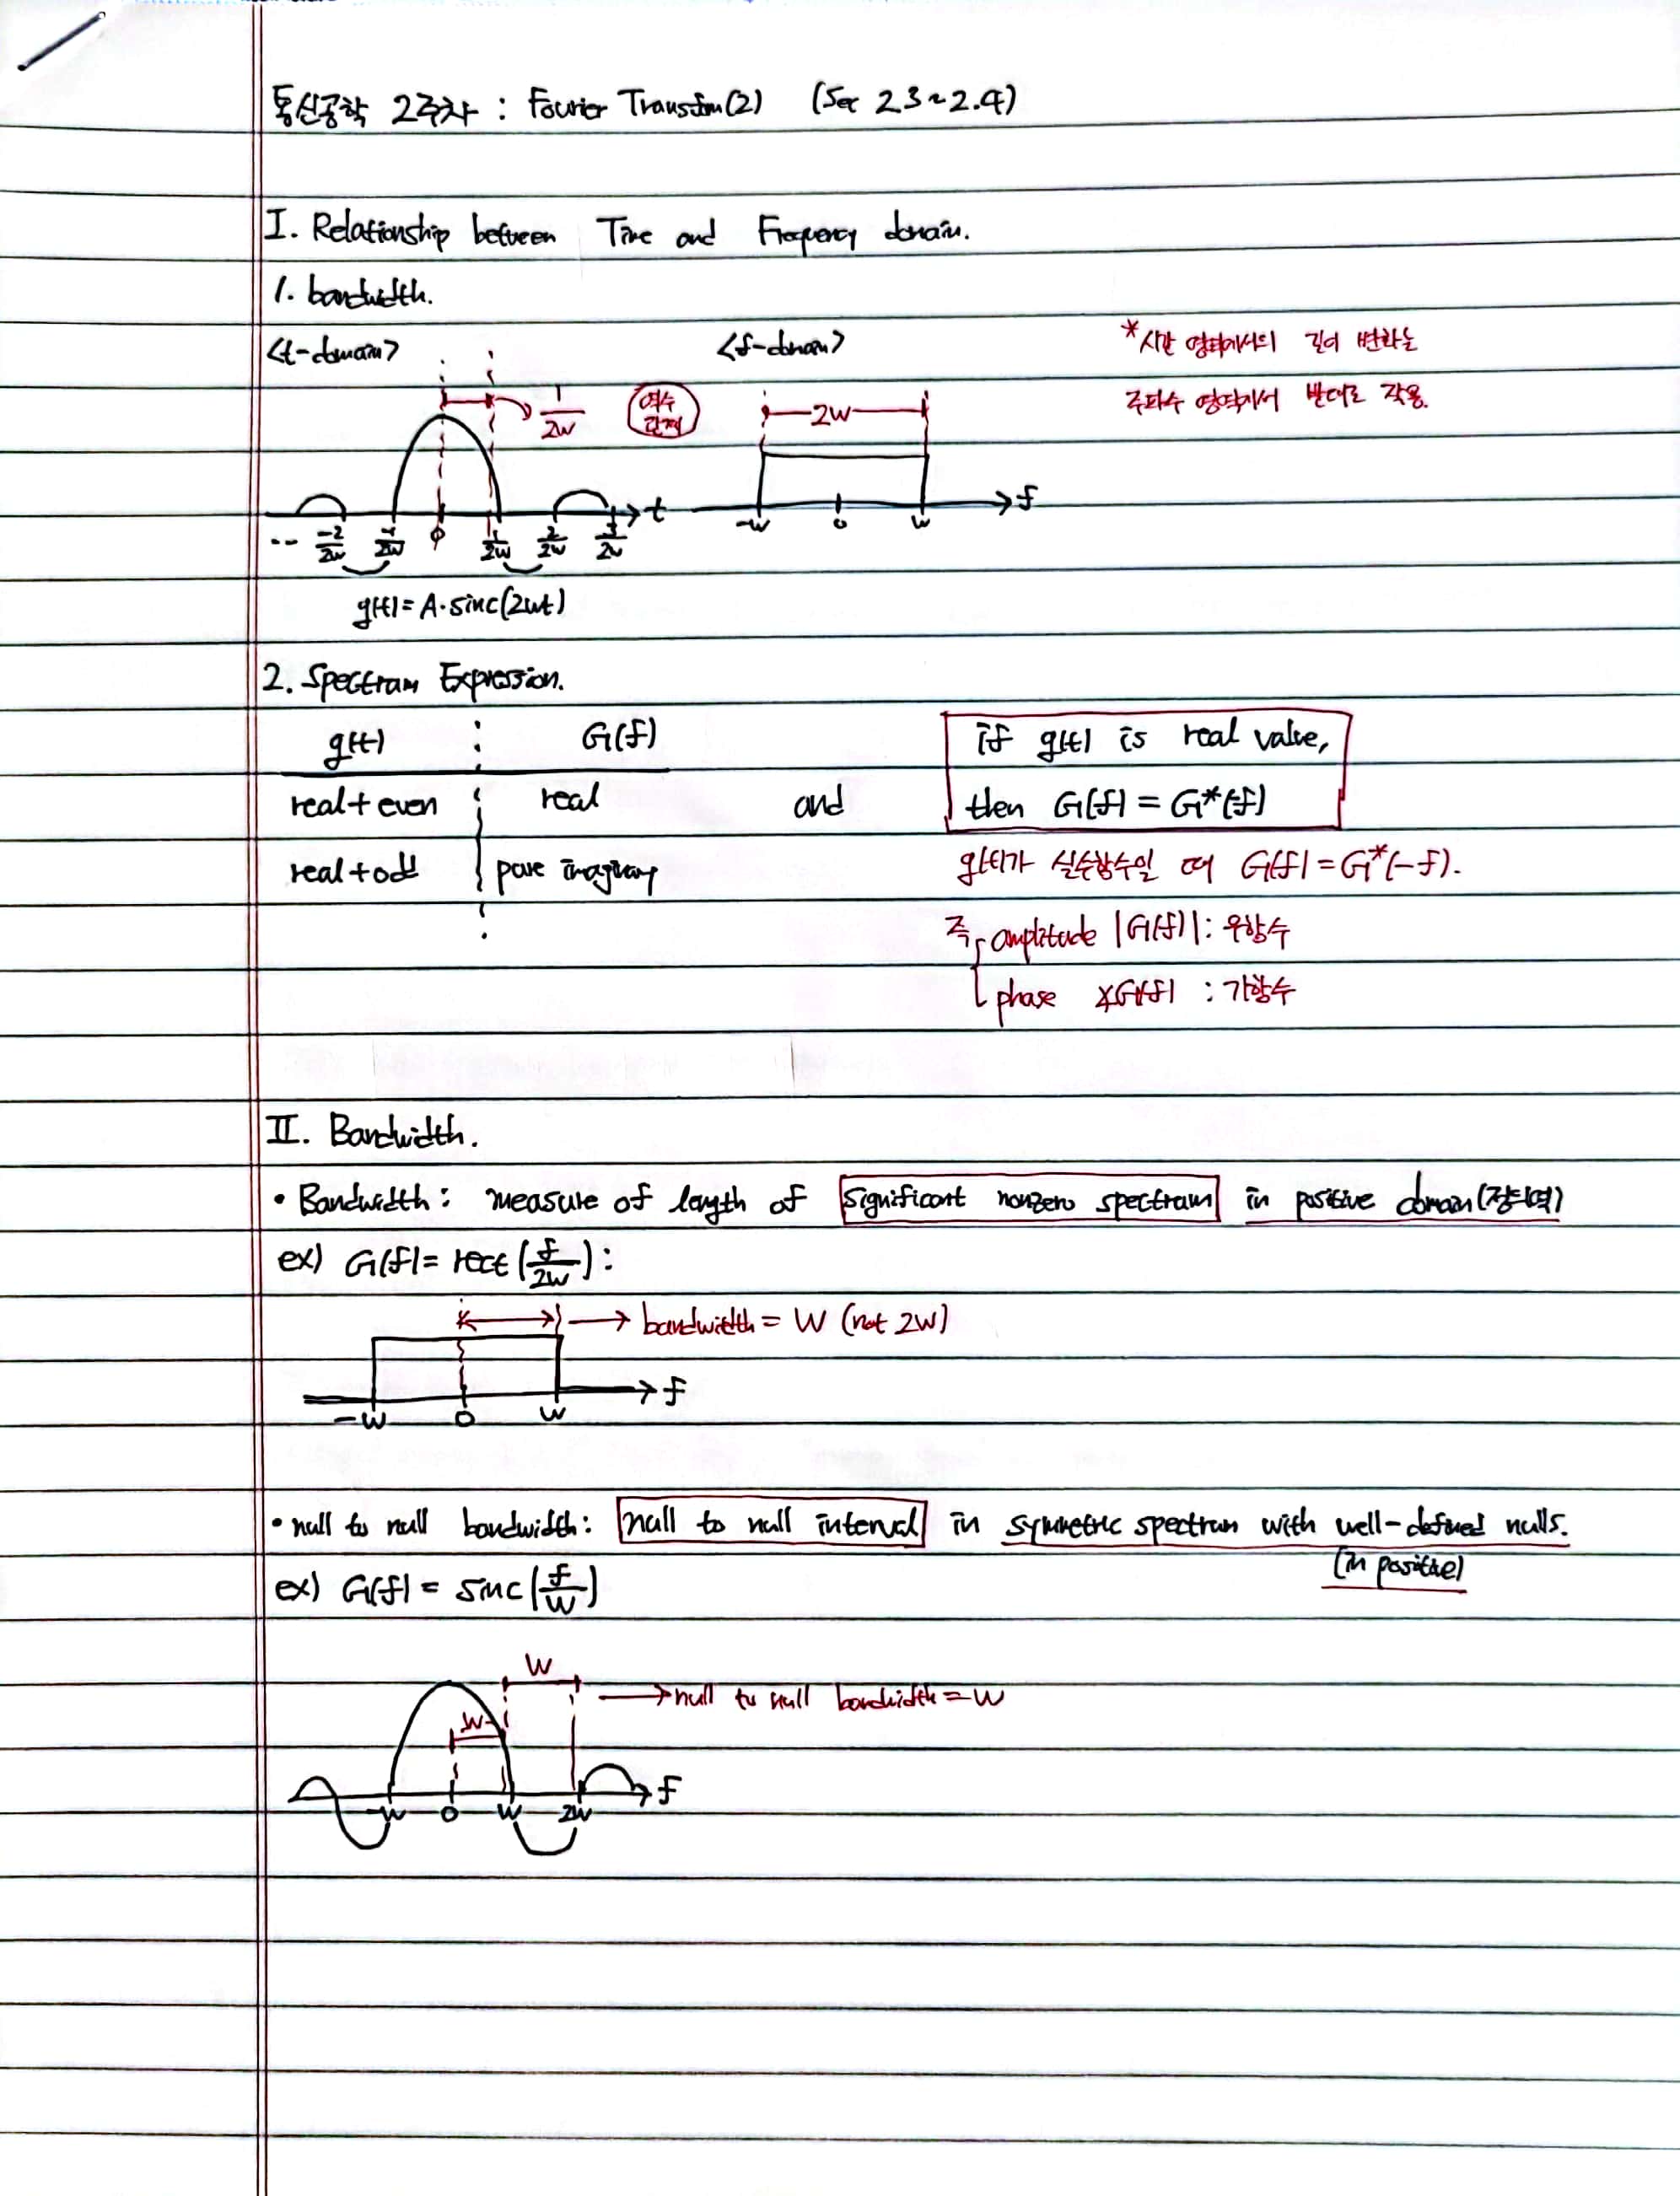 통신공학 2주차 : Fourier Transfrm(2) (Sec 2.3~2.4)
I. Relationship between Time and Frequency domain.
1. bandwidth.
<t-domain> <f-domain>
*시간 영역에서의 길이 변화는
주파수 영역에서 반대로 작용.
1/2W
역수
관계
2W
-- -2/2W -1/2W 0 1/2W 2/2W 3/2W t
-W 0 W f
g(t) = A·sinc(2Wt)
2. Spectrum Expression.
g(t) G(f)
real+even real and
real+odd pure imaginary
if g(t) is real value,
then G(f) = G*(f)
g(t)가 실수함수일 때 G(f) = G*(-f).
즉, amplitude |G(f)| : 우함수
phase ∡G(f) : 기함수
II. Bandwidth.
• Bandwidth : measure of length of significant nonzero spectrum in positive domain(정의역)
ex) G(f) = rect(f/2W) :
→ bandwidth = W (not 2W)
-W 0 W f
• null to null bandwidth : null to null interval in symmetric spectrum with well-defined nulls.
(in positive)
ex) G(f) = sinc(f/W)
W
→ null to null bandwidth = W
W
-W 0 W 2W f